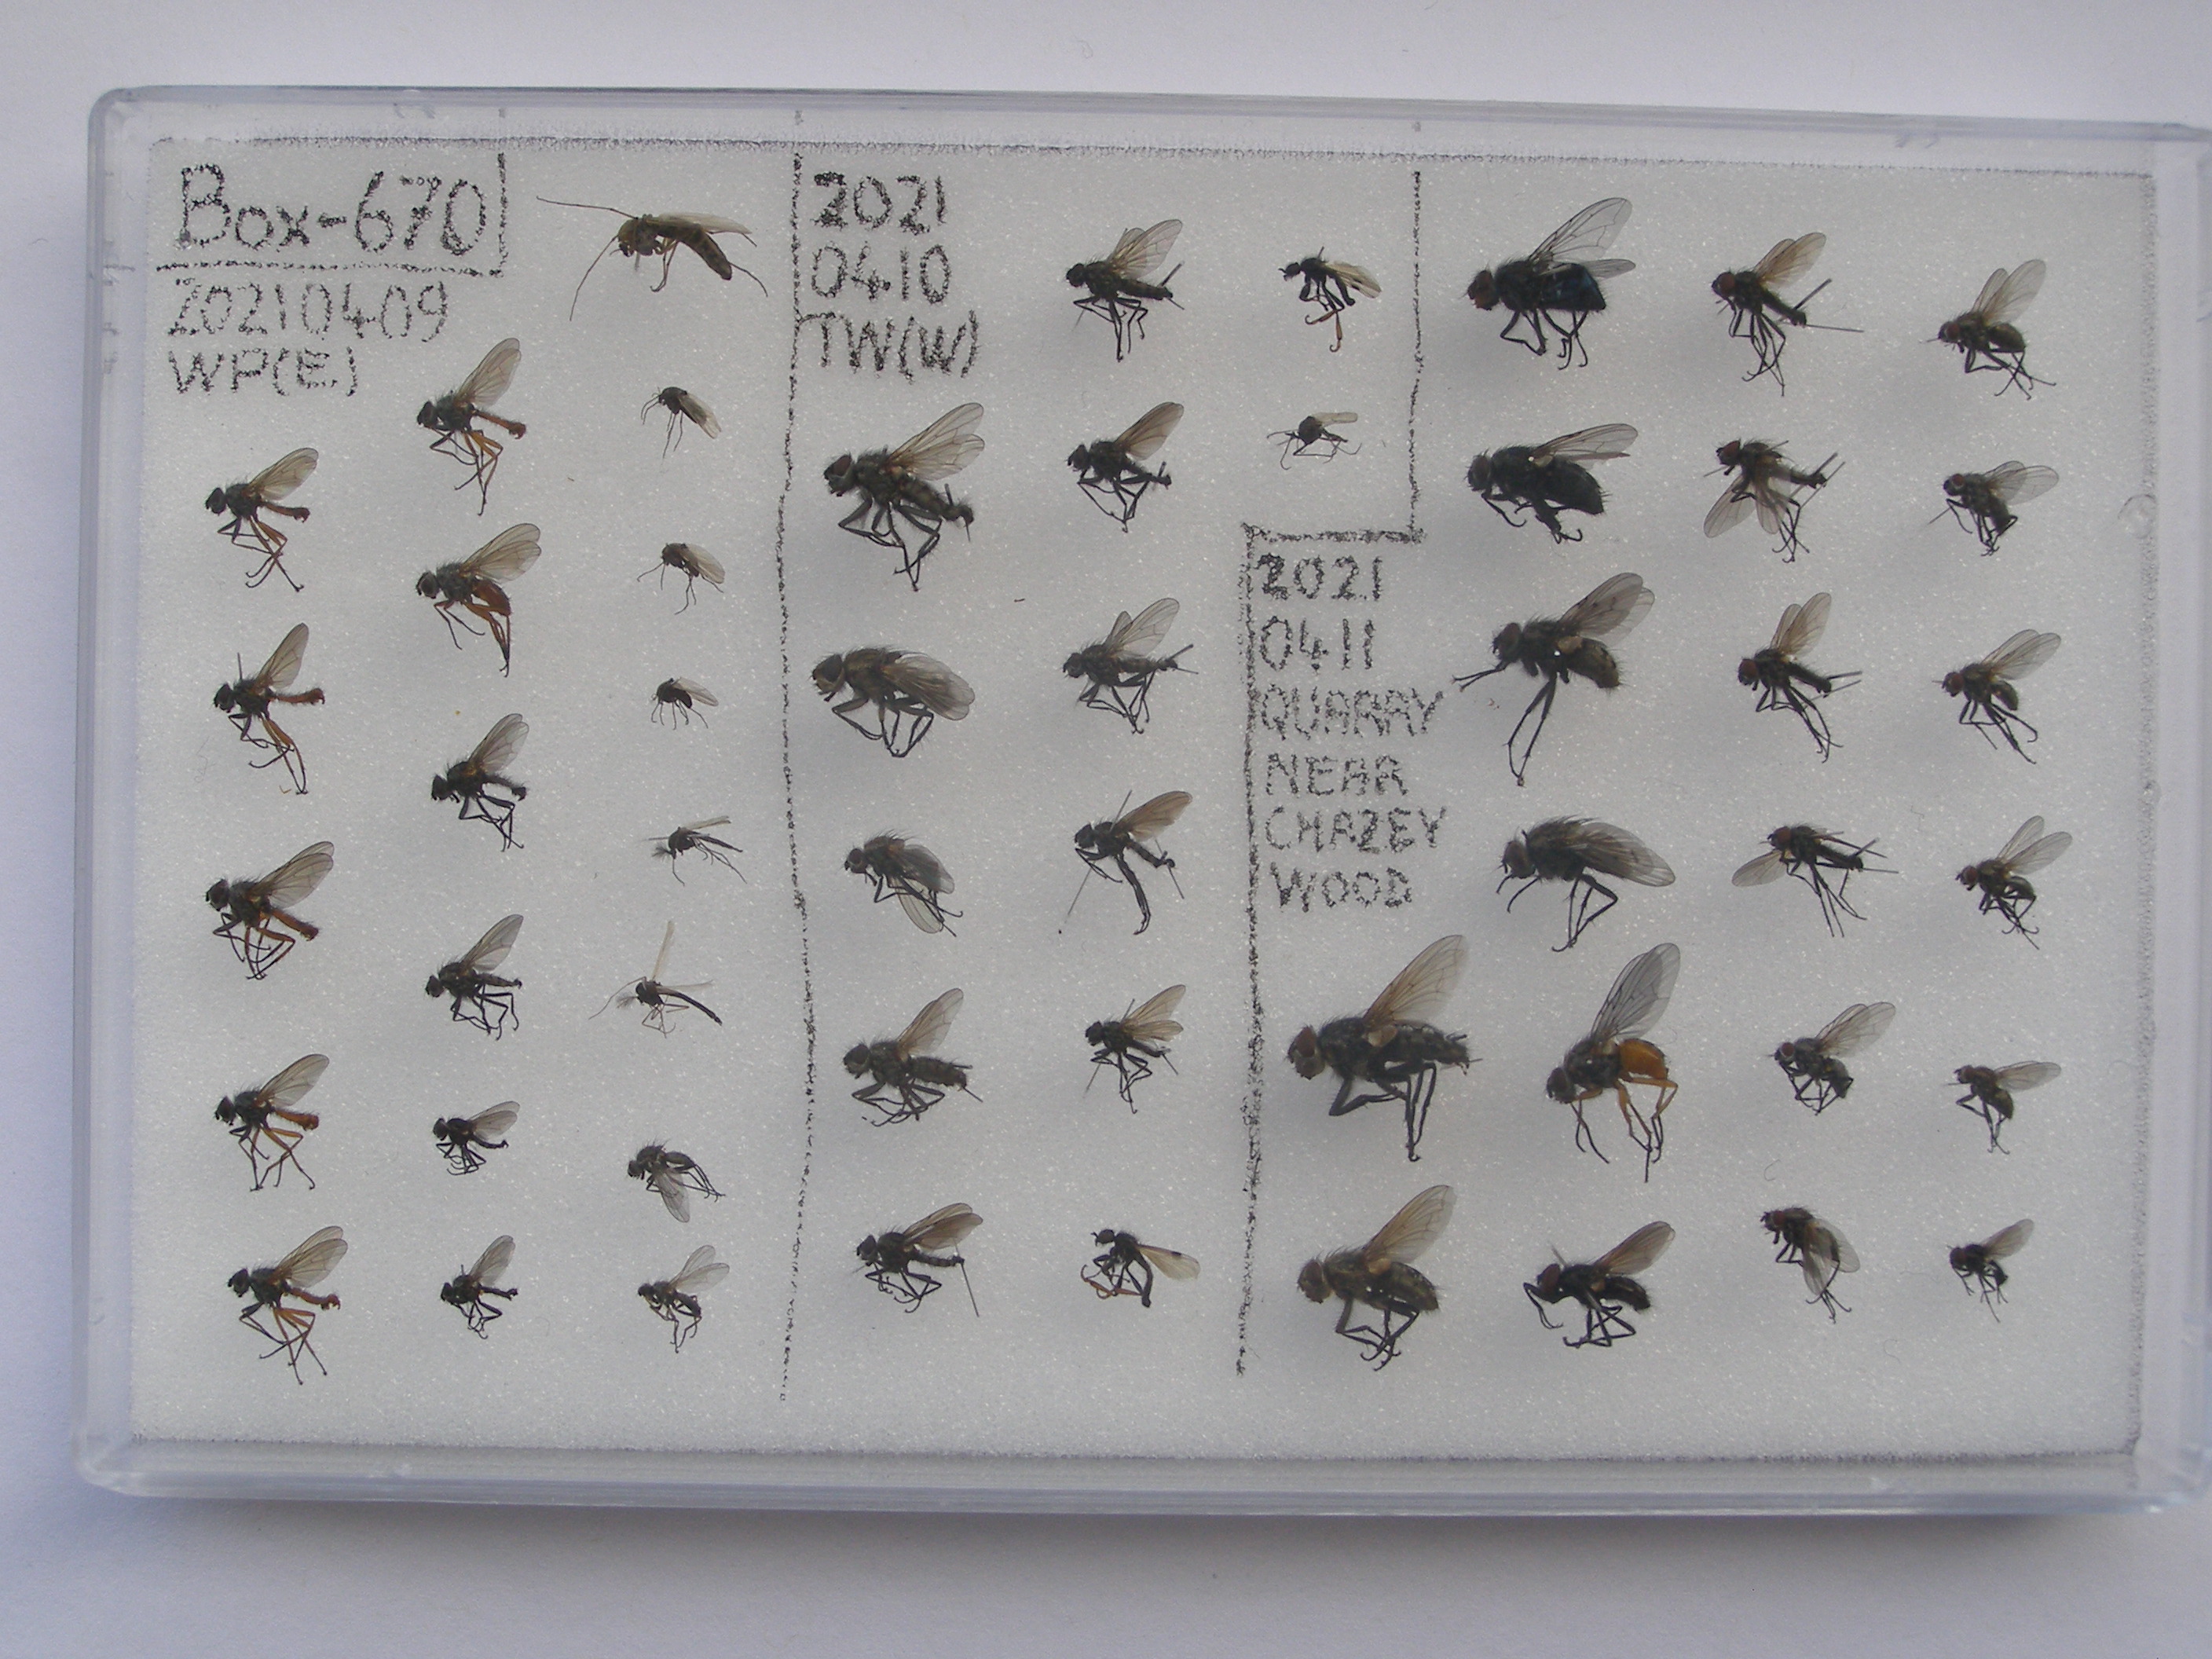 Box-670
20210409
WP(E)
2021
0410
TW(W)
2021
0411
QUARRY
NEAR
CHAZEY
WOOD